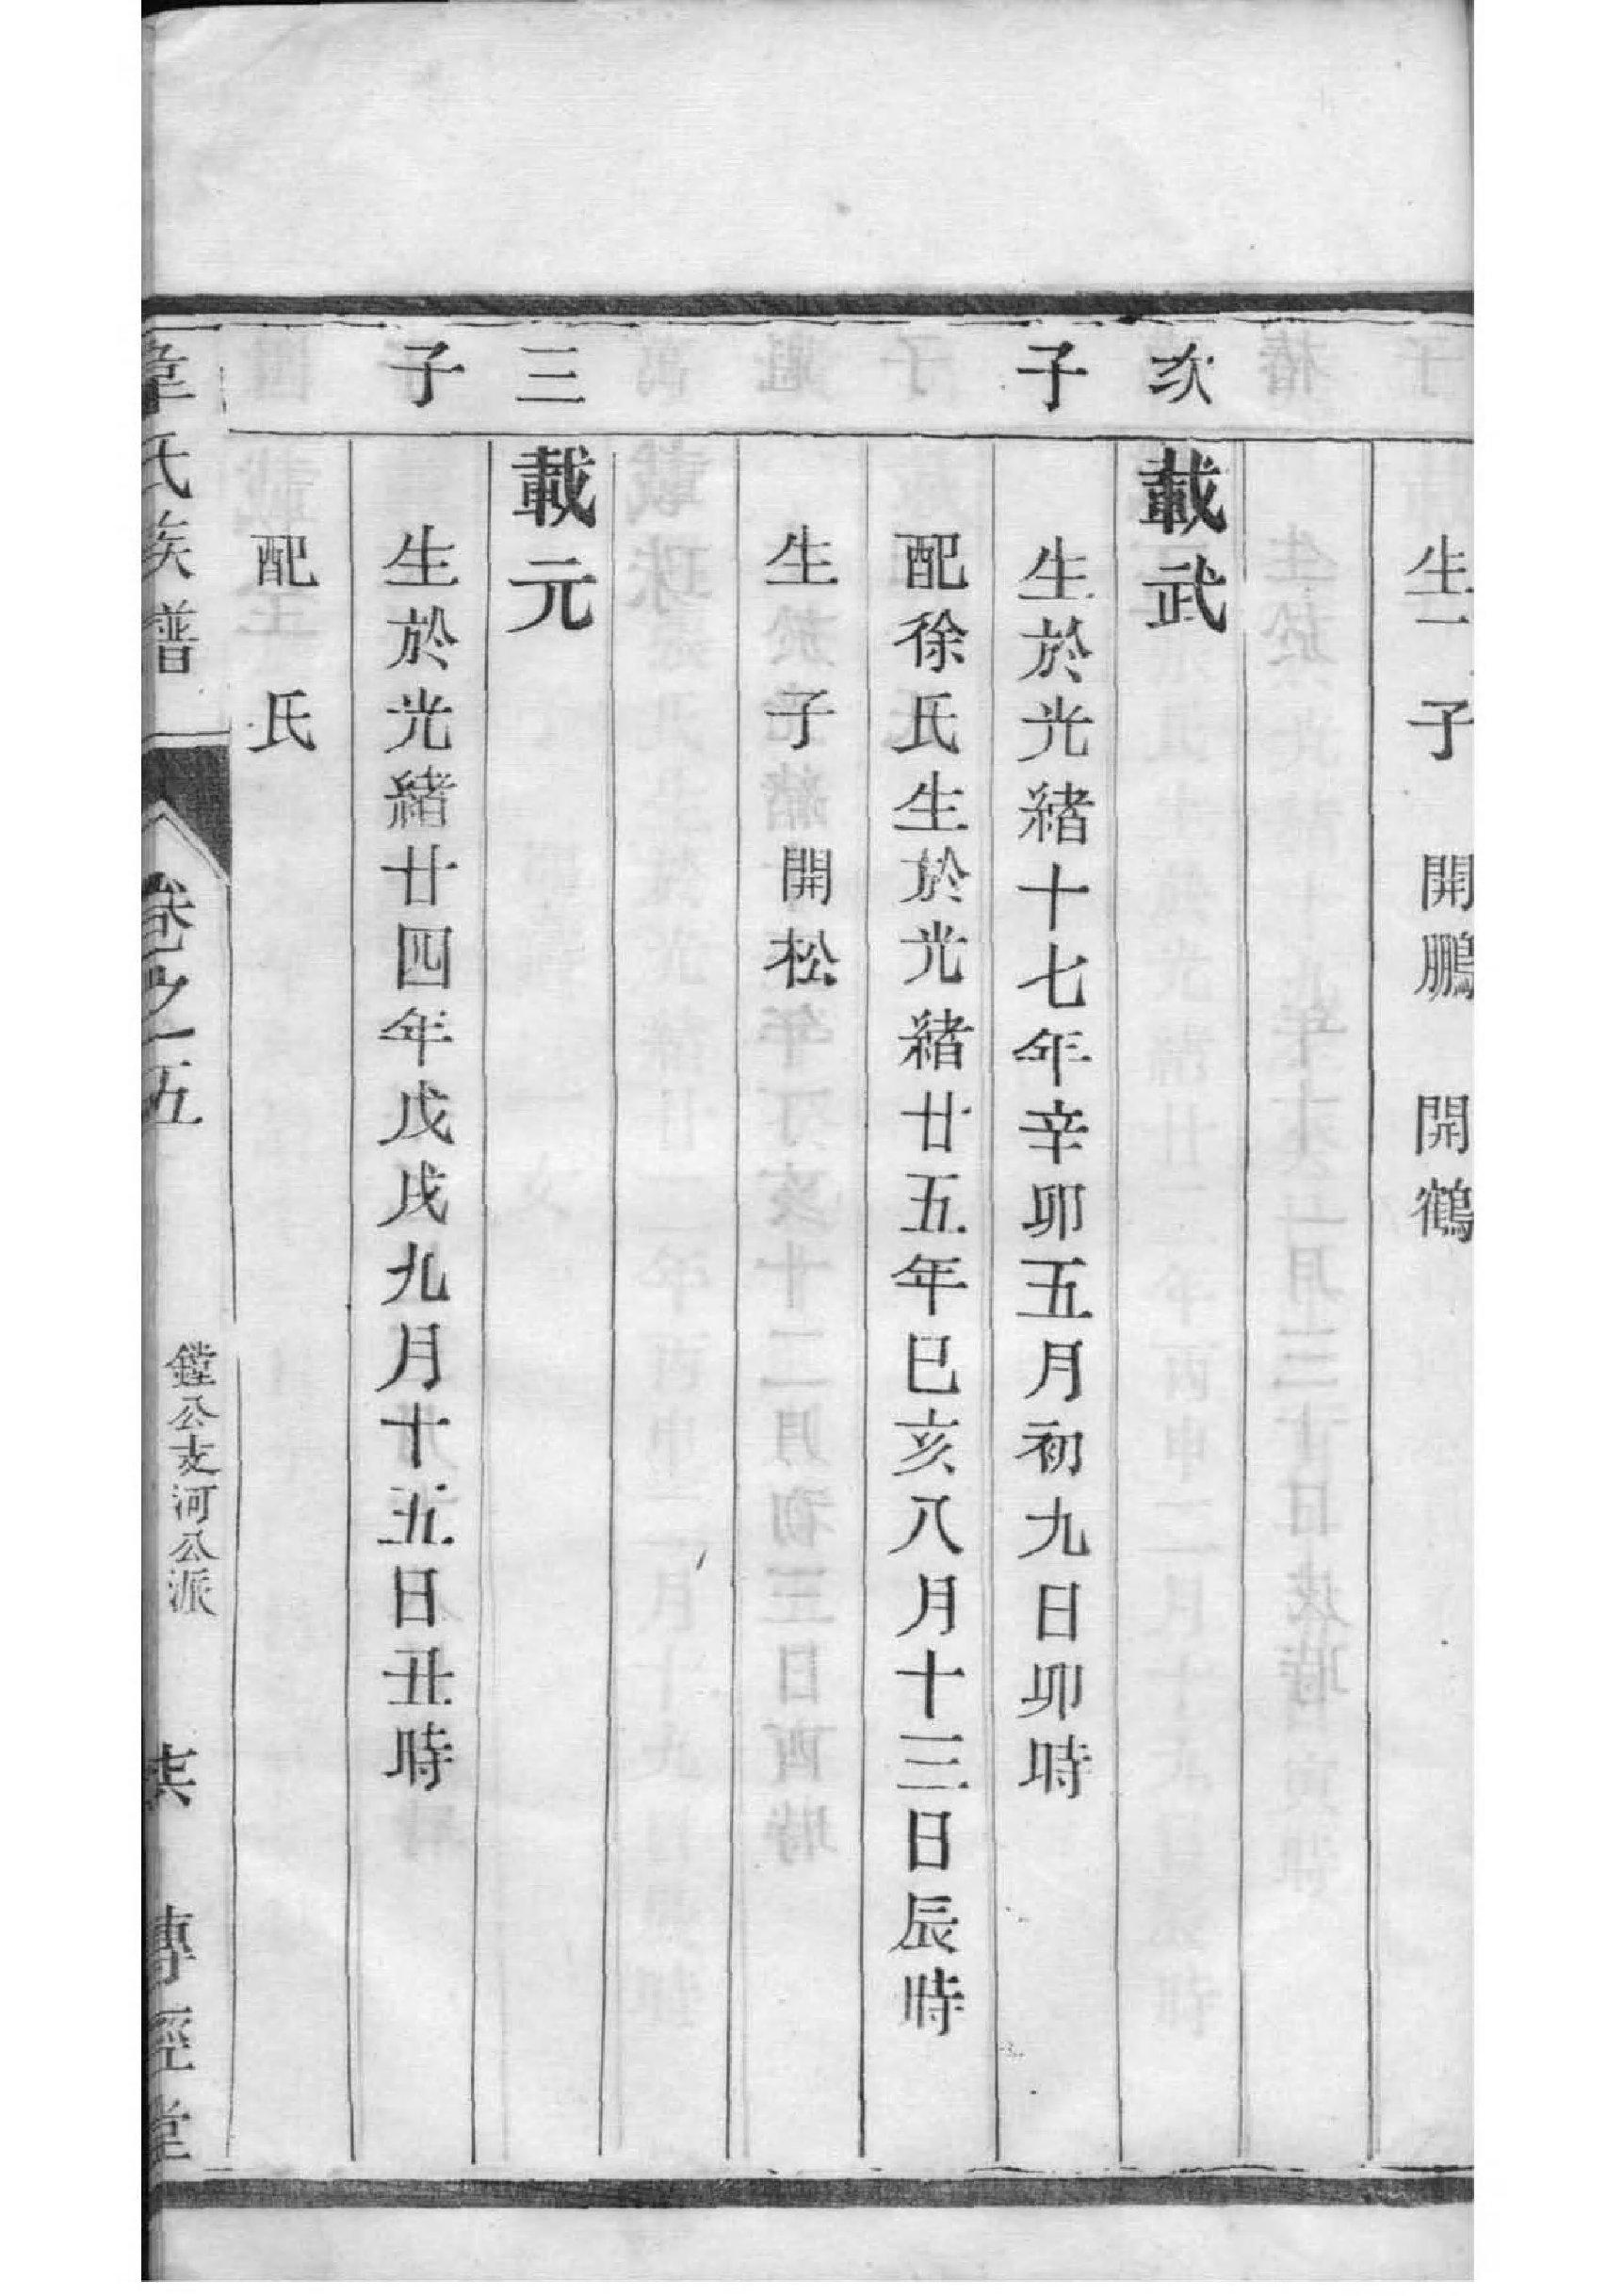 生一子　開鵬　開鶴
次子
載武
生於光緒十七年辛卯五月初九日卯時
配徐氏生於光緒廿五年己亥八月十三日辰時
生　子　開松
三子
載元
生於光緒廿四年戊戌九月十五日丑時
配　氏
韋氏族譜　卷之五　鏜公支河公派　傳經堂